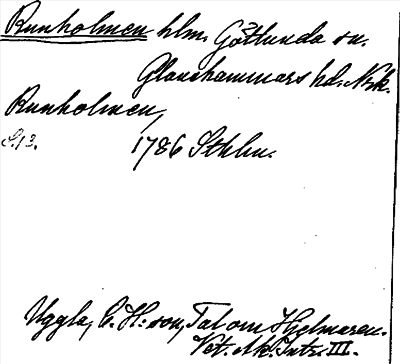 Runholmen hlm. Götlunda sn.
Glanshammars hd. Nrk.
Runholmen,
S. 13. 1786 Sthlm.
Uggla, C. H:son, Tal om Hjelmaren.
Vet. Ak. Intr. III.